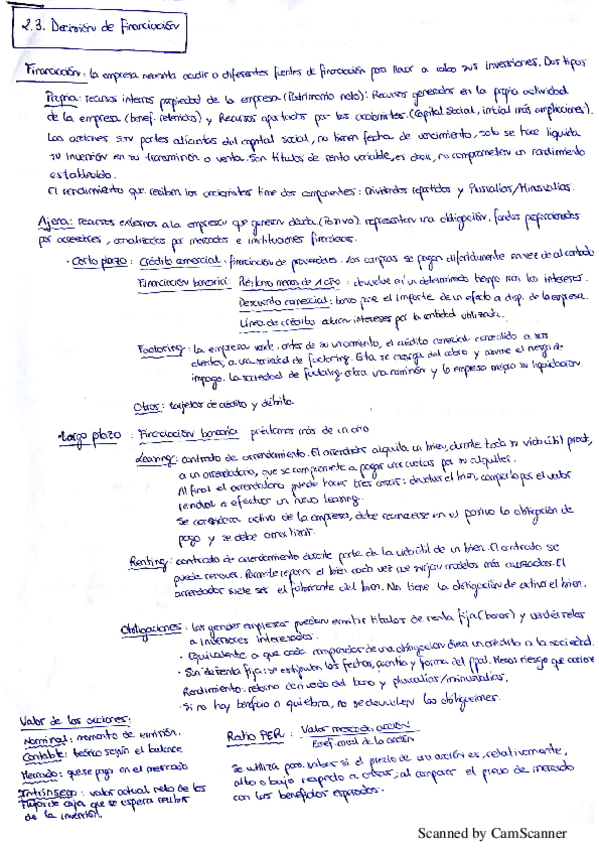 2.3. Decisión de financiación
Financiación: la empresa necesita acudir a diferentes fuentes de financiación para llevar a cabo sus inversiones. Dos tipos
Propia: recursos internos propiedad de la empresa (Patrimonio neto): Recursos generados en la propia actividad
de la empresa (benef. retenidos) y Recursos aportados por los accionistas. (Capital Social, inicial más ampliaciones).
Las acciones son partes alícuotas del capital social, no tienen fecha de vencimiento, solo se hace líquida
su inversión en su transmisión o venta. Son títulos de renta variable, es decir, no comprometen un rendimiento
establecido.
El rendimiento que reciben los accionistas tiene dos componentes: Dividendos repartidos y Plusvalías/Minusvalías.
Ajena: Recursos externos a la empresa y que generan deuda. (Pasivo). representan una obligación. fondos proporcionados
por acreedores, canalizados por mercados e instituciones financieras.
· Corto plazo: Crédito comercial: financiación de proveedores. Las compras se pagan diferidamente en vez de al contado
Financiación bancaria: Préstamo menos de 1 año: devuelve en un determinado tiempo más los intereses.
Descuento comercial: banco pone el importe de un efecto a disp. de la empresa.
Línea de crédito: intereses por la cantidad utilizada.
Factoring: la empresa vende, antes de su vencimiento, el crédito comercial concedido a sus
clientes, a una sociedad de factoring. Esta se encarga del cobro y asume el riesgo de
impago. La sociedad de factoring cobra una comisión y la empresa mejora su liquidación.
Otros: tarjetas de crédito y débito.
· Largo plazo: Financiación bancaria: préstamos más de un año
Leasing: contrato de arrendamiento. El arrendador alquila un bien, durante toda su vida útil
a un arrendatario, que se compromete a pagar unas cuotas por su alquiler.
Al final el arrendatario puede hacer tres cosas: devolver el bien, comprarlo por el valor
residual o efectuar un nuevo leasing.
Se considera activo de la empresa, debe reconocerse en el pasivo la obligación de
pago y se debe amortizar.
Renting: contrato de arrendamiento durante parte de la vida útil de un bien. El contrato se
puede renovar. Permite reponer el bien cada vez que surjan modelos más avanzados. El
arrendador suele ser el fabricante del bien. No tiene la obligación de activar el bien.
Obligaciones: las grandes empresas pueden emitir títulos de renta fija (bonos) y venderlos
a inversores interesados.
· Equivalente a que cada comprador de una obligación diera un crédito a la sociedad.
· Son de renta fija: se estipulan las fechas, cuantía y forma del Menos riesgo que acciones
Rendimiento: retorno derivado del bono y plusvalías/minusvalías.
· Si no hay beneficio o quiebra, no se devuelven las obligaciones.
Valor de las acciones:
Nominal: momento de emisión.
Contable: teórico según el balance
Mercado: que se paga en el mercado
Intrínseco: valor actual neto de los
flujos de caja que se espera recibir
de la inversión.
Ratio PER: Valor mercado acción
Benef. anual de la acción
Se utiliza para valorar si el precio de una acción es, relativamente,
alto o bajo respecto a otras, al comparar el precio de mercado
con los beneficios esperados.
Scanned by CamScanner